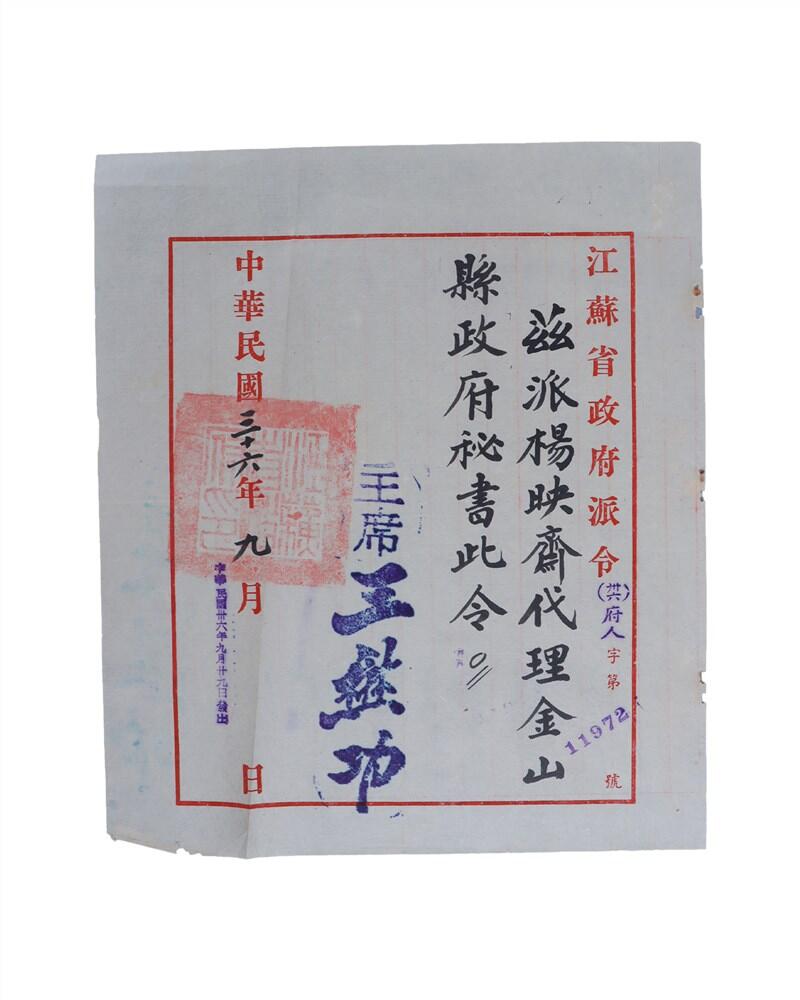 江蘇省政府派令
(卅六)府人字第11972號
茲派楊映齋代理金山
縣政府秘書此令。
主席王懋功
中華民國三十六年九月 日
中華民國卅六年九月廿九日發出
江蘇省政府印